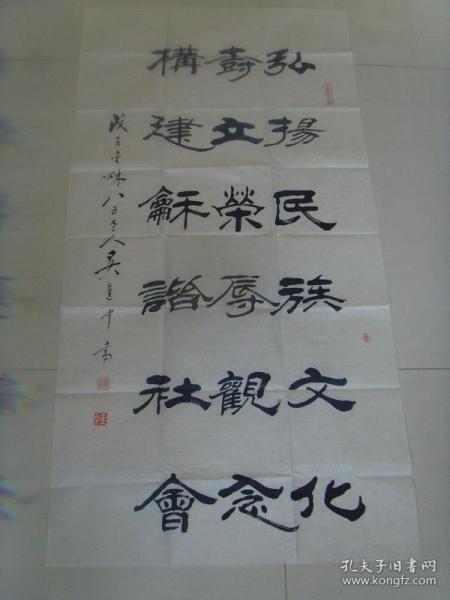 弘揚民族文化
尌立榮辱觀念
構建龢諧社會
戊子金秌八老人吳進中書
孔夫子旧书网
www.kongfz.com